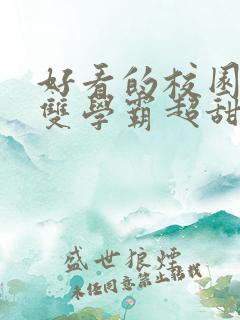 好看的校园
雙學霸超甜
盛世狼煙
未经同意禁止转载